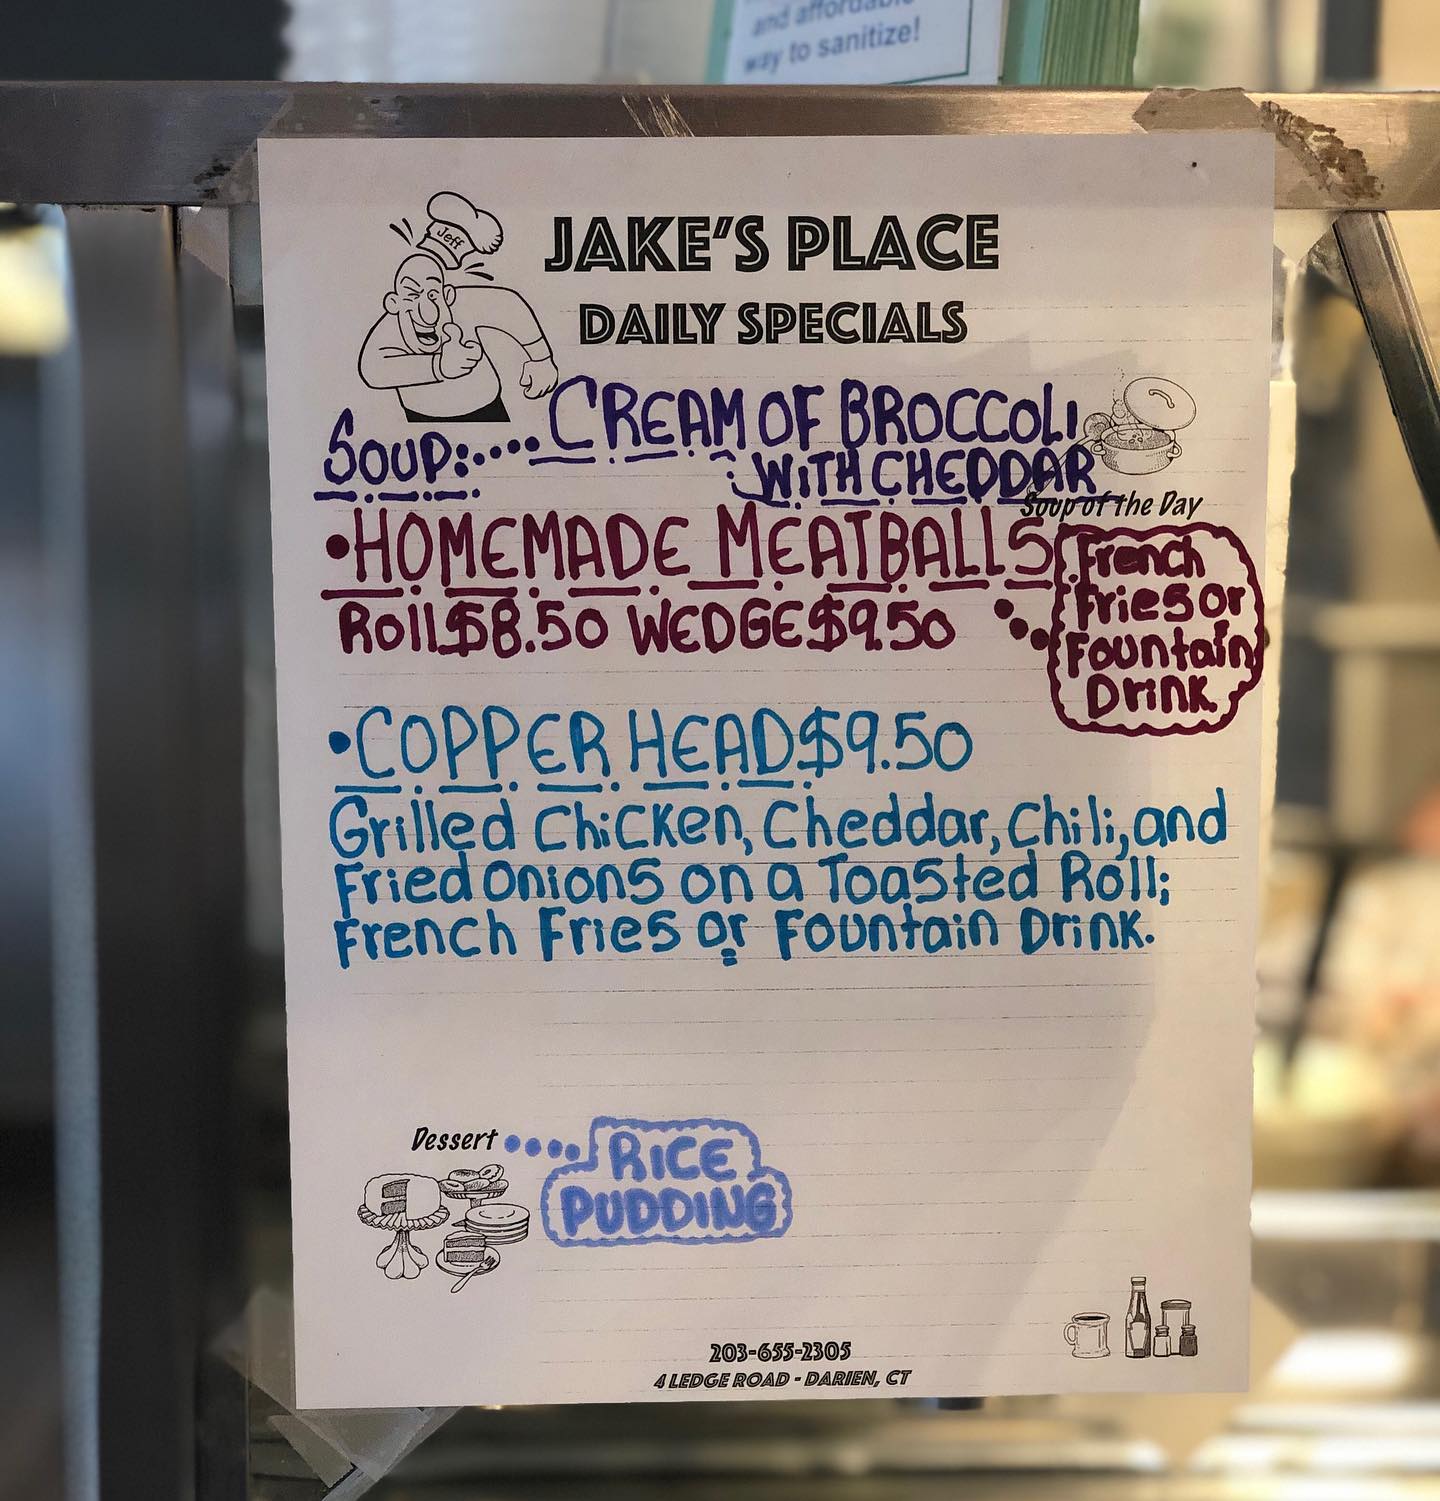 and affordable
way to sanitize!
Jeff
JAKE'S PLACE
DAILY SPECIALS
SOUP:....CREAM OF BROCCOLI
WITH CHEDDAR
Soup of the Day
•HOMEMADE MEATBALLS
Roll $8.50 WEDGE $9.50
French
Fries or
Fountain
Drink.
•COPPER HEAD $9.50
Grilled Chicken, Cheddar, Chili, and
Fried Onions on a Toasted Roll;
French Fries or Fountain Drink.
Dessert
RICE
PUDDING
203-655-2305
4 LEDGE ROAD - DARIEN, CT